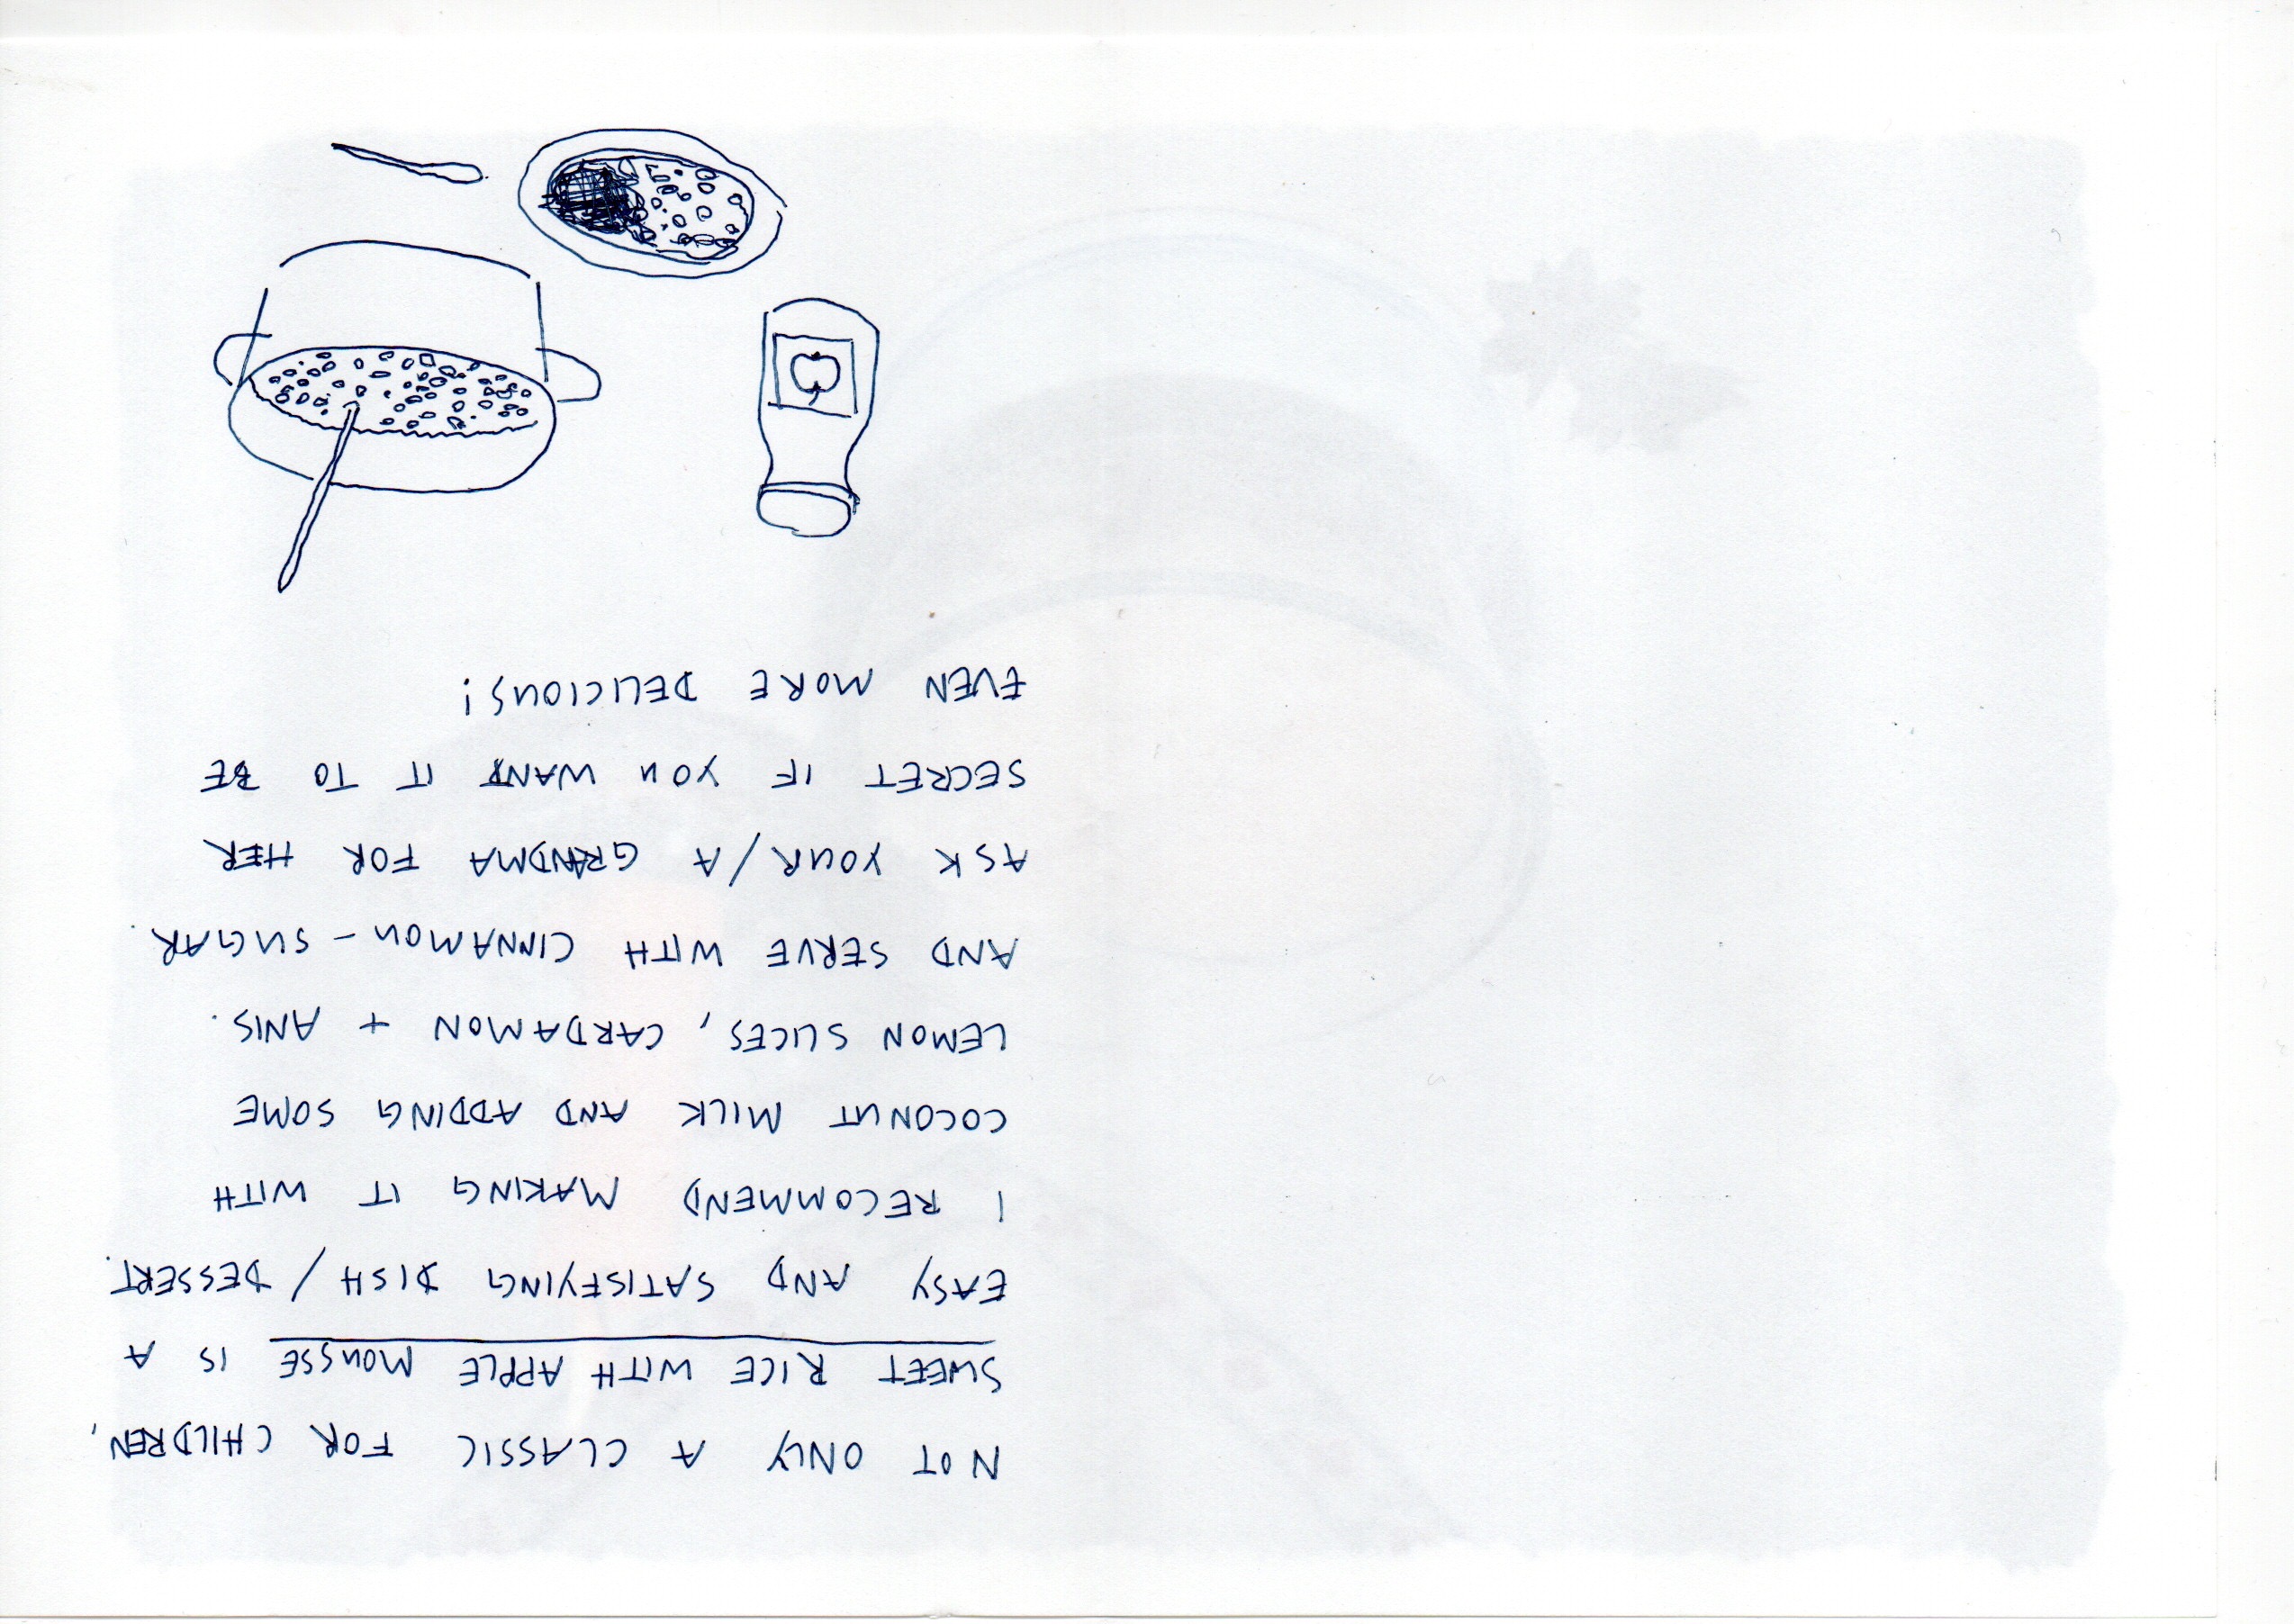 NOT ONLY A CLASSIC FOR CHILDREN,
SWEET RICE WITH APPLE MOUSSE IS A
EASY AND SATISFYING DISH / DESSERT.
I RECOMMEND MAKING IT WITH
COCONUT MILK AND ADDING SOME
LEMON SLICES, CARDAMON + ANIS.
AND SERVE WITH CINNAMON - SUGAR.
ASK YOUR/A GRANDMA FOR HER
SECRET IF YOU WANT IT TO BE
EVEN MORE DELICIOUS!